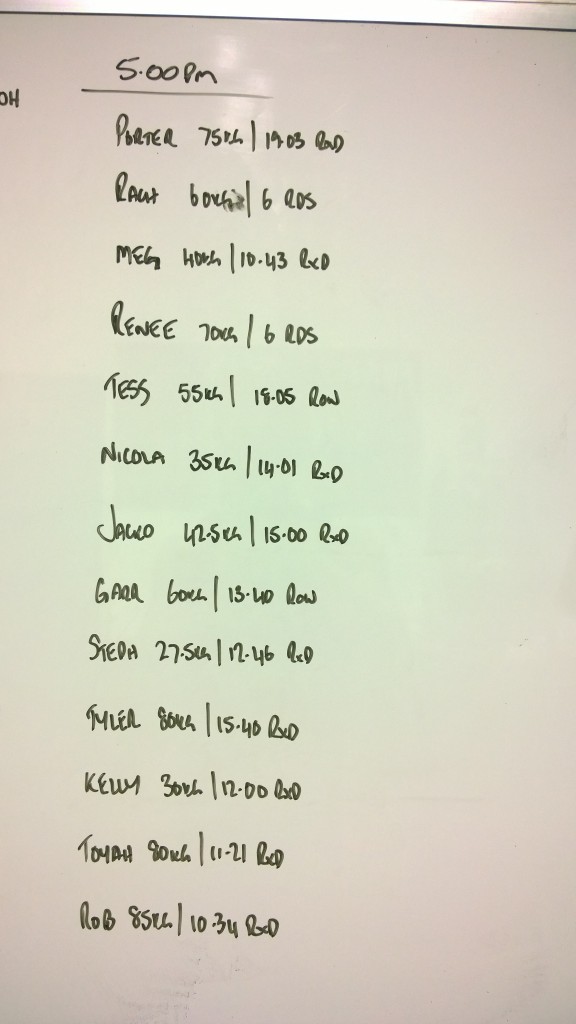 5.00pm
OH
PORTER 75KG | 19.03 RxD
60KG | 6 RDS
MEG 40KG | 10.43 RxD
RENEE 70KG | 6 RDS
TESS 55KG | 18.05 ROW
NICOLA 35KG | 14.01 RxD
JACKO 42.5KG | 15.00 RxD
GARR 60KG | 13.40 ROW
STEPH 27.5KG | 12.46 RxD
TYLER 80KG | 15.40 RxD
KELLY 30KG | 12.00 RxD
TOYAH 80KG | 11.21 RxD
ROB 85KG | 10.34 RxD